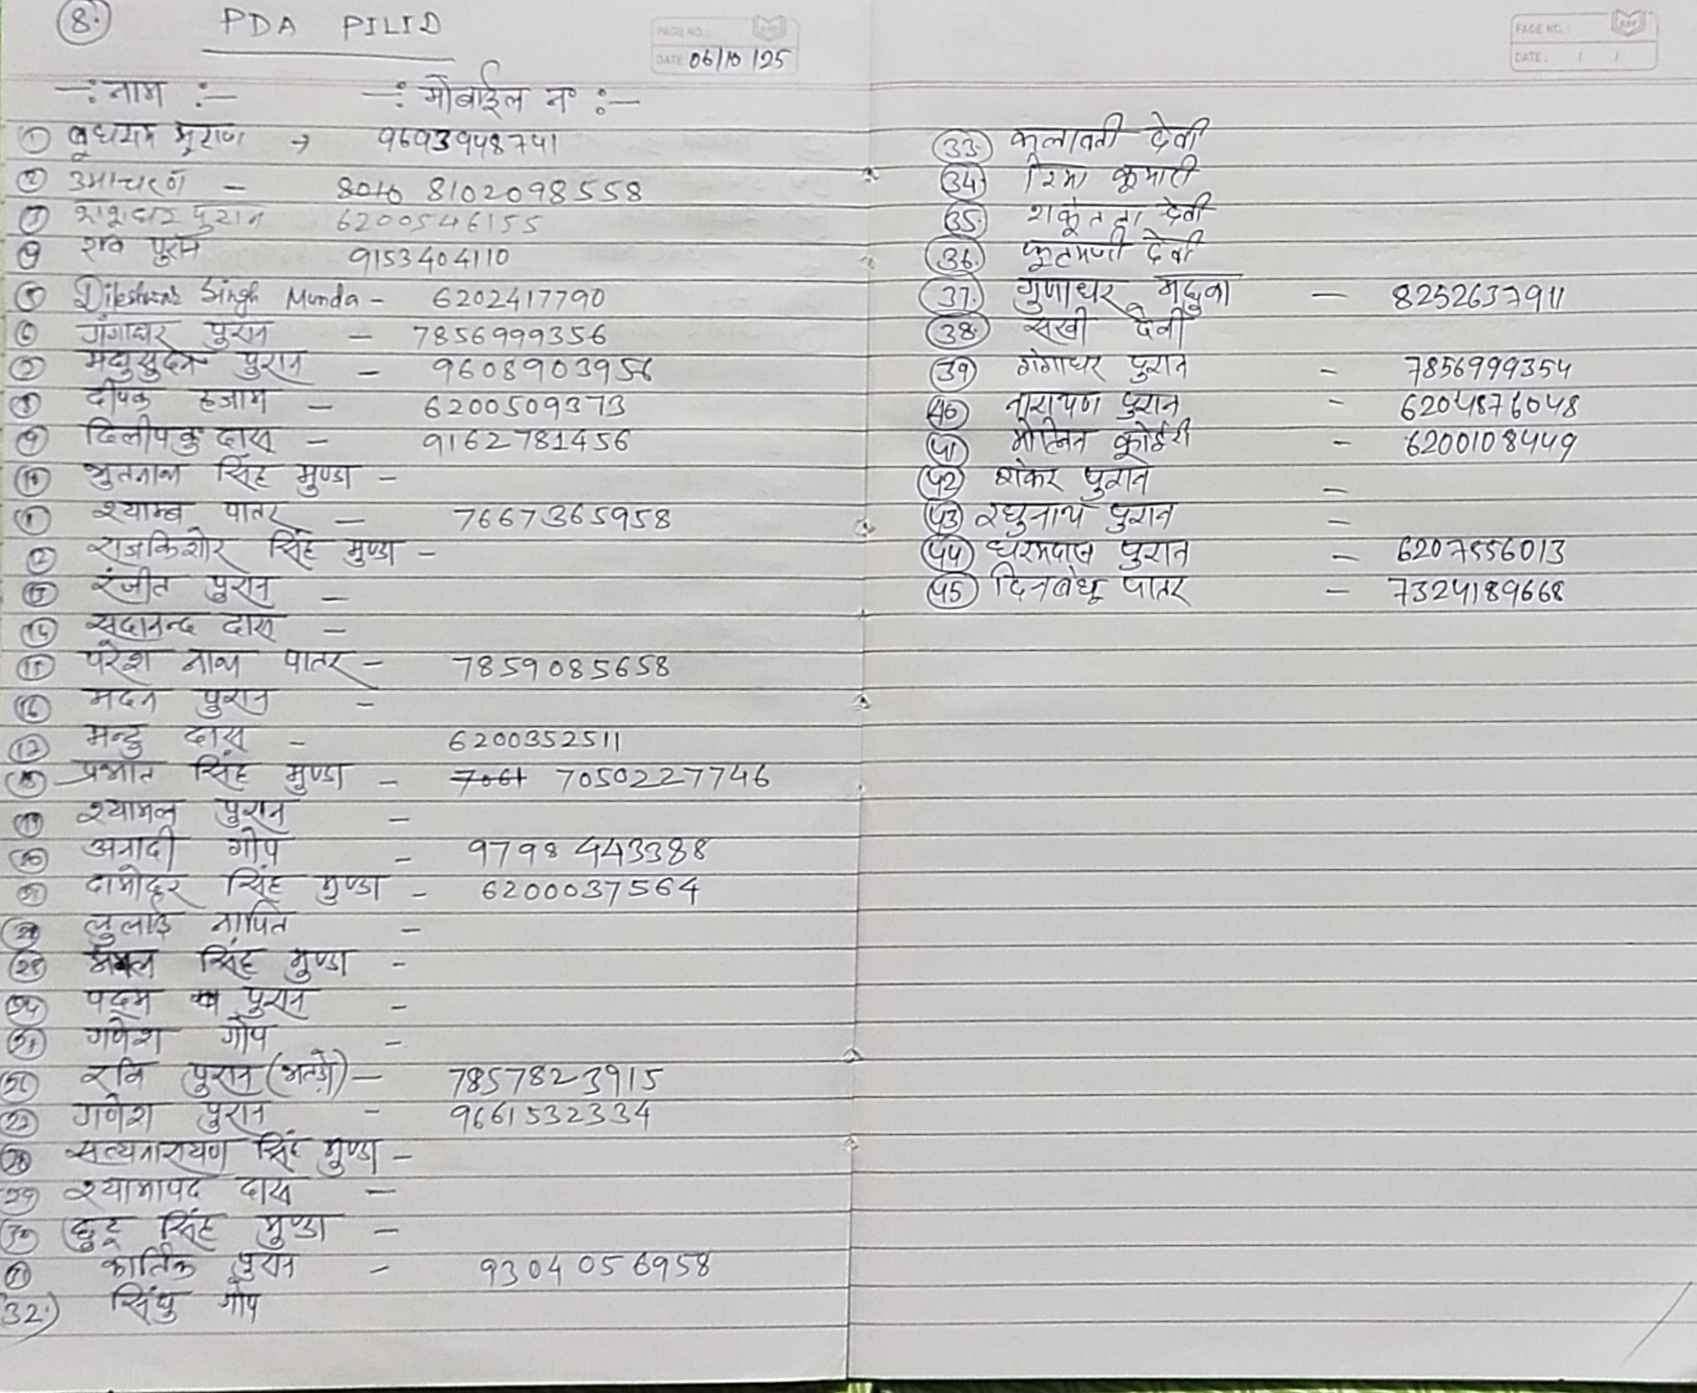 8.
PDA PILID
PAGE NO.:
DATE: 06/10/25
-: नाम :- -: मोबाईल न० :-
① बुधराम पुराण → 9693948741
② उमाचरण - 8010 8102098558
③ पुरान 6200546155
④ रवि पुरान 9153404110
⑤ Dileshwar Singh Munda - 6202417790
⑥ गंगाधर पुरान - 7856999356
⑦ मधुसुदन पुरान - 9608903956
⑧ दीपक हजाम - 6200509373
⑨ दिलीप कु दास - 9162781456
⑩ भुतनाथ सिंह मुण्डा -
⑪ पातर - 7667365958
⑫ राजकिशोर सिंह मुण्डा -
⑬ रंजीत पुरान -
⑭ सदानन्द दास -
⑮ परेश नाथ पातर - 7859085658
⑯ मदन पुरान -
⑰ मन्टु दास - 6200352511
⑱ प्रभात सिंह मुण्डा - 7061 7050227746
⑲ श्यामल पुरान -
⑳ अनादी गोप - 9798443388
㉑ दामोदर सिंह मुण्डा - 6200037564
㉒ लुलाई नापित -
㉓ सिंह मुण्डा -
㉔ पद्म पुरान -
㉕ गणेश गोप -
㉖ रवि पुरान - 7857823915
㉗ गणेश पुरान - 9661532334
㉘ सत्यनारायण सिंह मुण्डा -
㉙ श्यामापद दास -
㉚ छुटू सिंह मुण्डा -
㉛ कार्तिक पुरान - 9304056958
32.) सिंधु गोप
PAGE NO.:
DATE: / /
33. कलावती देवी
34. रिमा कुमारी
35. शकुंतला देवी
36. फूलमणी देवी
37. गुणाधर मछुवा - 8252637911
38. सखी देवी
39. गंगाधर पुरान - 7856999354
40. नारायण पुरान - 6204876048
41. कोईरी - 6200108449
42. शंकर पुरान -
43. रघुनाथ पुरान -
44. धरमदास पुरान - 6207556013
45. दिनबंधू पातर - 7324189668